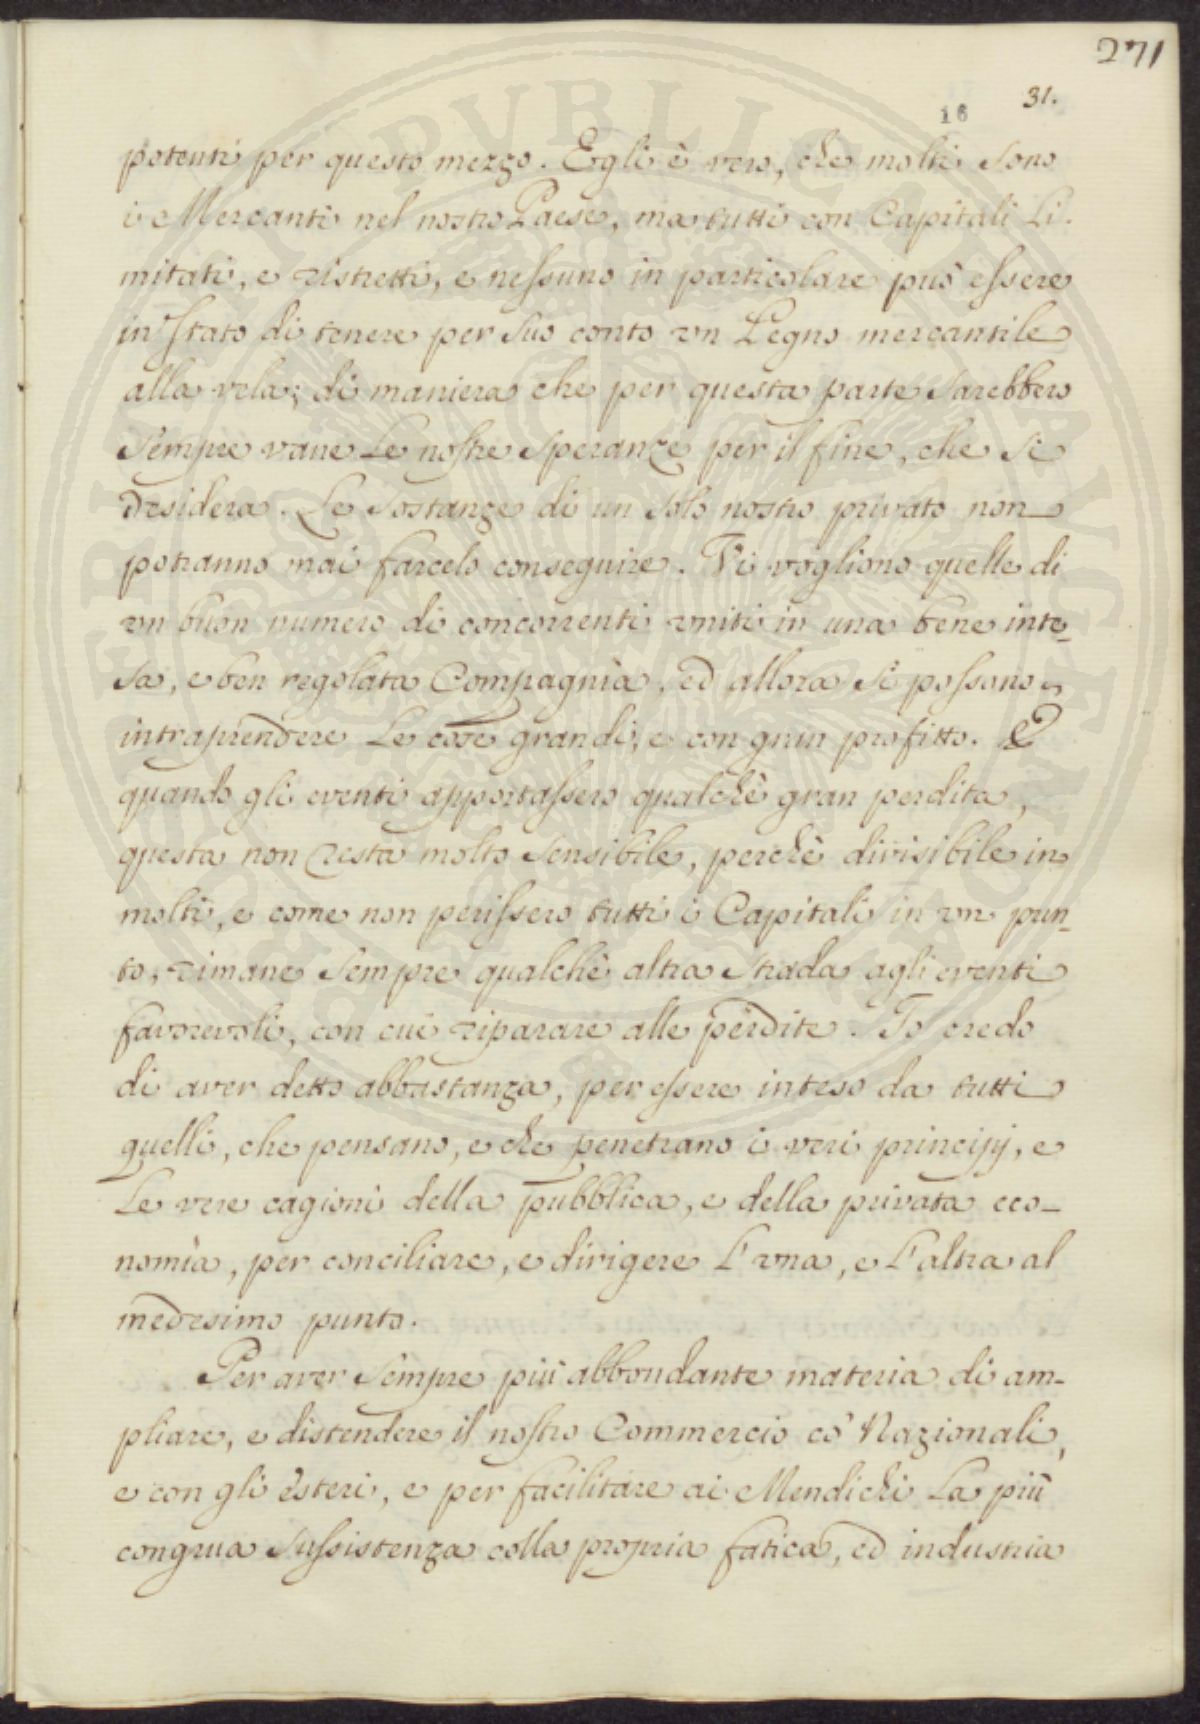 271
31.
16
potenti per questo mezzo. Egli è vero, che molti sono
i Mercanti nel nostro Paese, ma tutti con Capitali Li-
mitati, e ristretti, e nessuno in particolare può essere
in stato di tenere per suo conto vn Legno mercantile
alla vela; di maniera che per questa parte sarebbero
sempre vane Le nostre speranze per il fine, che si
desidera. Le sostanze di un solo nostro privato non
potranno mai farcelo conseguire. Vi vogliono quelle di
vn buon numero di concorrenti vniti in una bene inte-
sa, e ben regolata Compagnìa, ed allora si possono
intraprendere Le cose grandi, e con gran profitto. E
quando gli eventi apportassero qualchè gran perdita,
questa non resta molto sensibile, perchè divisibile in
molti, e come non perissero tutti i Capitali in vn pun-
to, rimane sempre qualchè altra strada agli eventi
favorevoli, con cui riparare alle perdite. Io credo
di aver detto abbastanza, per essere inteso da tutti
quelli, che pensano, e che penetrano i veri principj, e
Le vere cagioni della pubblica, e della privata eco-
nomìa, per conciliare, e dirigere L'vna, e L'altra al
medesimo punto.
Per aver sempre più abbondante materia di am-
pliare, e distendere il nostro Commercio co' Nazionali,
e con gli èsteri, e per facilitare ai Mendichi La più
congrua sussistenza colla propria fatica, ed industria